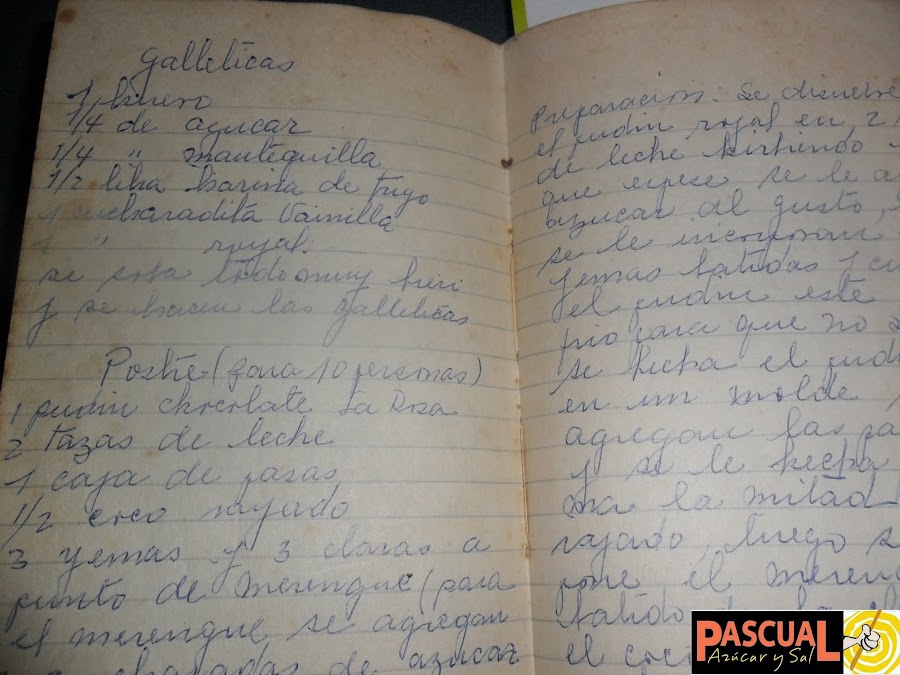 galleticas
1 huevo
1/4 de azucar
1/4 " mantequilla
1/2 liba harina de trigo
1 cucharadita Vainilla
1 " royal.
se soba todo muy bien
y se hacen las galleticas
Postre (para 10 personas)
1 pudin chocolate La Rosa
2 tazas de leche
1 caja de pasas
1/2 coco rayado
3 yemas y 3 claras a
punto de merengue (para
el merengue se agregan
de azucar
Preparacion. Se disuelve
el pudin royal en 2
de leche hirbiendo
que espese se le a
azucar al gusto,
se le incorporan
yemas batidas y cu
el pudin este
frio para que no
se hecha el pudi
en un molde
agregan las pa
y se le hecha
ma la mitad
rayado, luego s
pone el meren
batido
el coco
PASCUAL
Azúcar y Sal